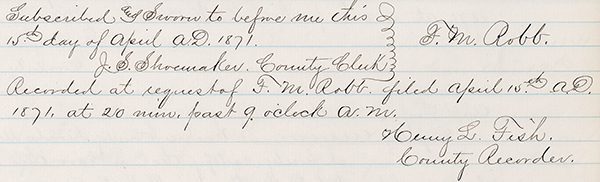 Subscribed and Sworn to before me this
15th day of April A.D. 1871. F. M. Robb.
J. S. Shoemaker. County Clerk
Recorded at request of F. M. Robb. filed April 15th A.D.
1871. at 20 min. past 9. oclock A. M.
Henry L. Fish.
County Recorder.